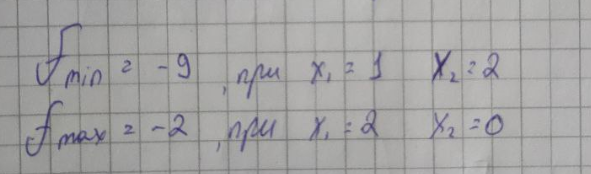 f min = -9 , при x₁ = 1 x₂ = 2
f max = -2 , при x₁ = 2 x₂ = 0